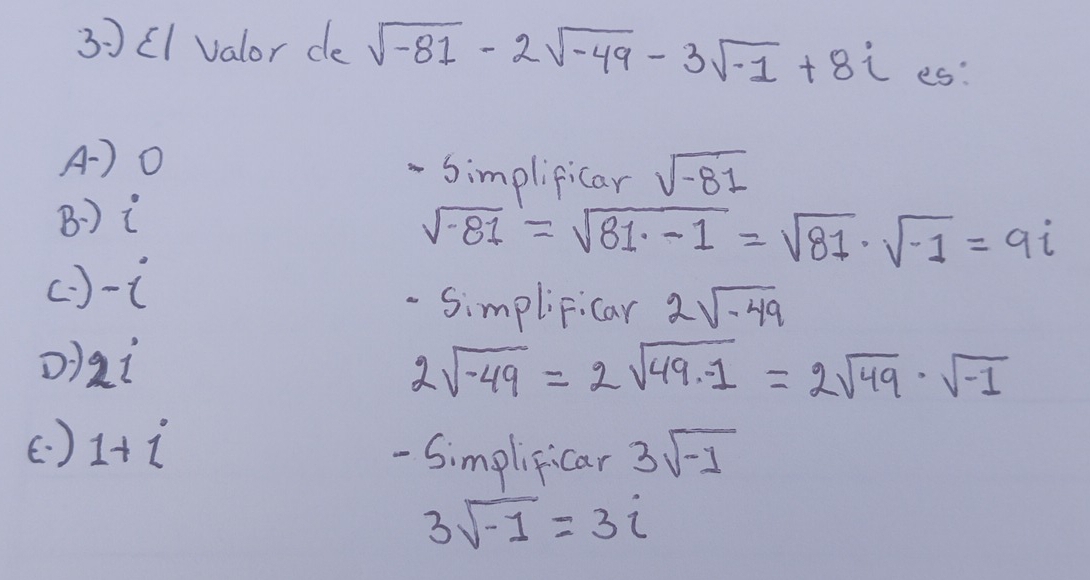 3-) El valor de √-81 - 2√-49 - 3√-1 + 8i es:
A-) 0
B-) i
C-) -i
D-) 2i
E-) 1+i
- Simplificar √-81
√-81 = √81·-1 = √81·√-1 = 9i
- Simplificar 2√-49
2√-49 = 2√49.-1 = 2√49·√-1
- Simplificar 3√-1
3√-1 = 3i